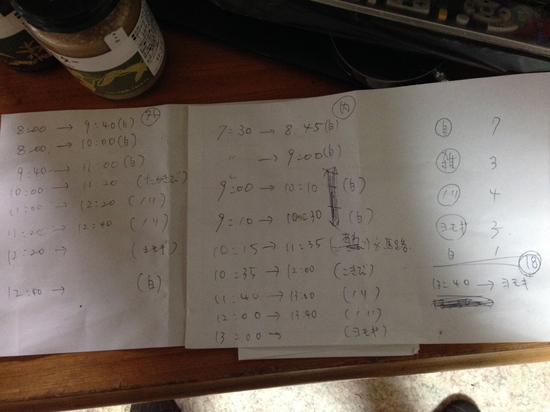 外
8:00 → 9:40(白)
8:00 → 10:00(白)
9:40 → 11:00(白)
10:00 → 11:20
11:00 → 12:20 (ノリ)
11:20 → 12:40 (ノリ)
12:20 → (ヨモギ)
12:40 → (白)
内
7:30 → 8:45(白)
〃 → 9:00(白)
9:00 → 10:10 (白)
9:10 → 10:30 (白)
10:15 → 11:35
10:35 → 12:00
11:40 → 13:00 (ノリ)
12:00 → 13:40 (ノリ)
13:00 → (ヨモギ)
白 7
雑 3
ノリ 4
ヨモギ 3
白 1
18
13:40 → ヨモギ